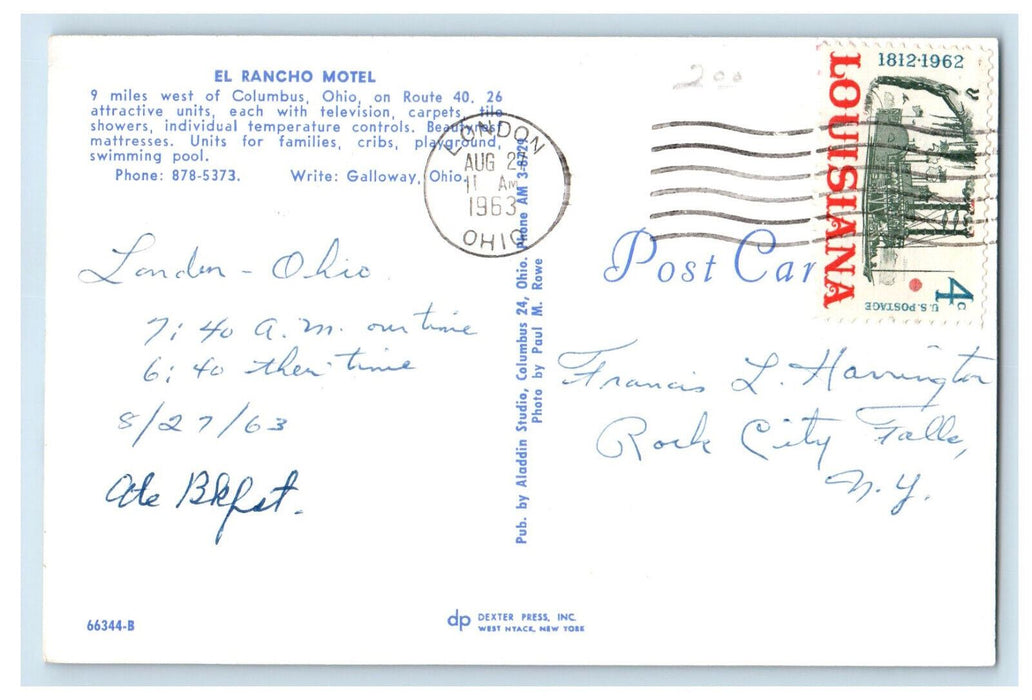 EL RANCHO MOTEL
9 miles west of Columbus, Ohio, on Route 40. 26
attractive units, each with television, carpets, tile
showers, individual temperature controls. Beautyrest
mattresses. Units for families, cribs, playground,
swimming pool.
Phone: 878-5373. Write: Galloway, Ohio.
London - Ohio
7:40 A.M. our time
6:40 their time
8/27/63
Ate Bkfst.
66344-B
Pub. by Aladdin Studio, Columbus 24, Ohio. Phone AM 3-8729
Photo by Paul M. Rowe
dp DEXTER PRESS, INC.
WEST NYACK, NEW YORK
LONDON
AUG 27
11 AM
1963
OHIO
200
Post Car
1812·1962
LOUISIANA
4c
U.S. POSTAGE
Francis L. Harrington
Rock City Falls,
N.Y.